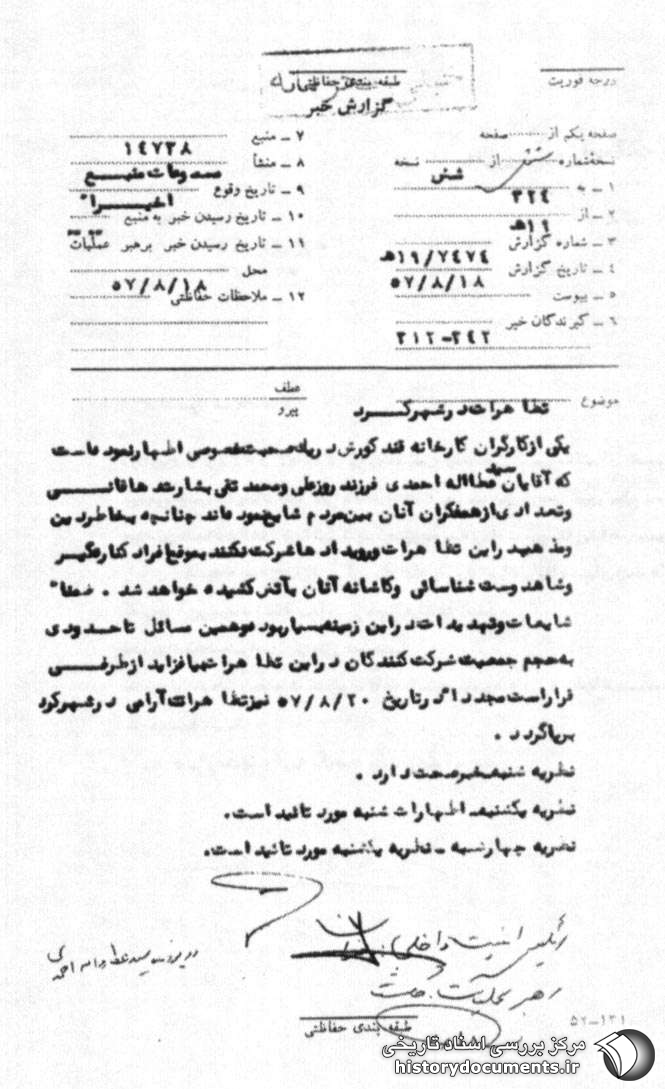 طبقه بندی حفاظتی
درجه فوریت
گزارش خبر
صفحه یکم از صفحه
نسخه شماره از شش نسخه
۱ ـ به ۳۲۴
۲ ـ از ۱۹ﻫ
۳ ـ شماره گزارش ۱۹/۷۴۷۴ﻫ
۴ ـ تاریخ گزارش ۵۷/۸/۱۸
۵ ـ پیوست
۶ ـ گیرندگان خبر ۳۴۲-۳۱۲
۷ ـ منبع ۱۴۷۳۸
۸ ـ منشأ مسموعات منبع
۹ ـ تاریخ وقوع اخیراً
۱۰ ـ تاریخ رسیدن خبر به منبع
۱۱ ـ تاریخ رسیدن خبر برهبر عملیات
محل ۵۷/۸/۱۸
۱۲ ـ ملاحظات حفاظتی
عطف
پیرو
موضوع تظاهرات در شهرکرد
یکی از کارگران کارخانه قند کورش در یک صحبت خصوصی اظهار نموده است
که آقایان سید عطااله احمدی فرزند روزعلی و محمد تقی بشارت دهاقانی
و تعدادی از همفکران آنان بین مردم شایع نموده اند چنانچه بخاطر دین
و مذهب در این تظاهرات و رویدادها شرکت نکنند بموقع افراد کناره گیر
و شاهدوست شناسائی و کاشانه آنان بآتش کشیده خواهد شد . ضمناً
شایعات و تهدیدات در این زمینه بسیار بوده و همین مسائل تا حدودی
به حجم جمعیت شرکت کنندگان در این تظاهراتها میافزاید از طرفی
قرار است مجدداً در تاریخ ۵۷/۸/۲۰ نیز تظاهرات آرامی در شهرکرد
برپا گردد .
نظریه شنبه ـ خبر صحت دارد .
نظریه یکشنبه ـ اظهارات شنبه مورد تائید است .
نظریه چهارشنبه ـ نظریه یکشنبه مورد تائید است .
رئیس امنیت داخلی
رهبر عملیات
در پرونده سید عطااله احمدی
طبقه بندی حفاظتی
۵۲-۱۳۱
مرکز بررسی اسناد تاریخی
historydocuments.ir